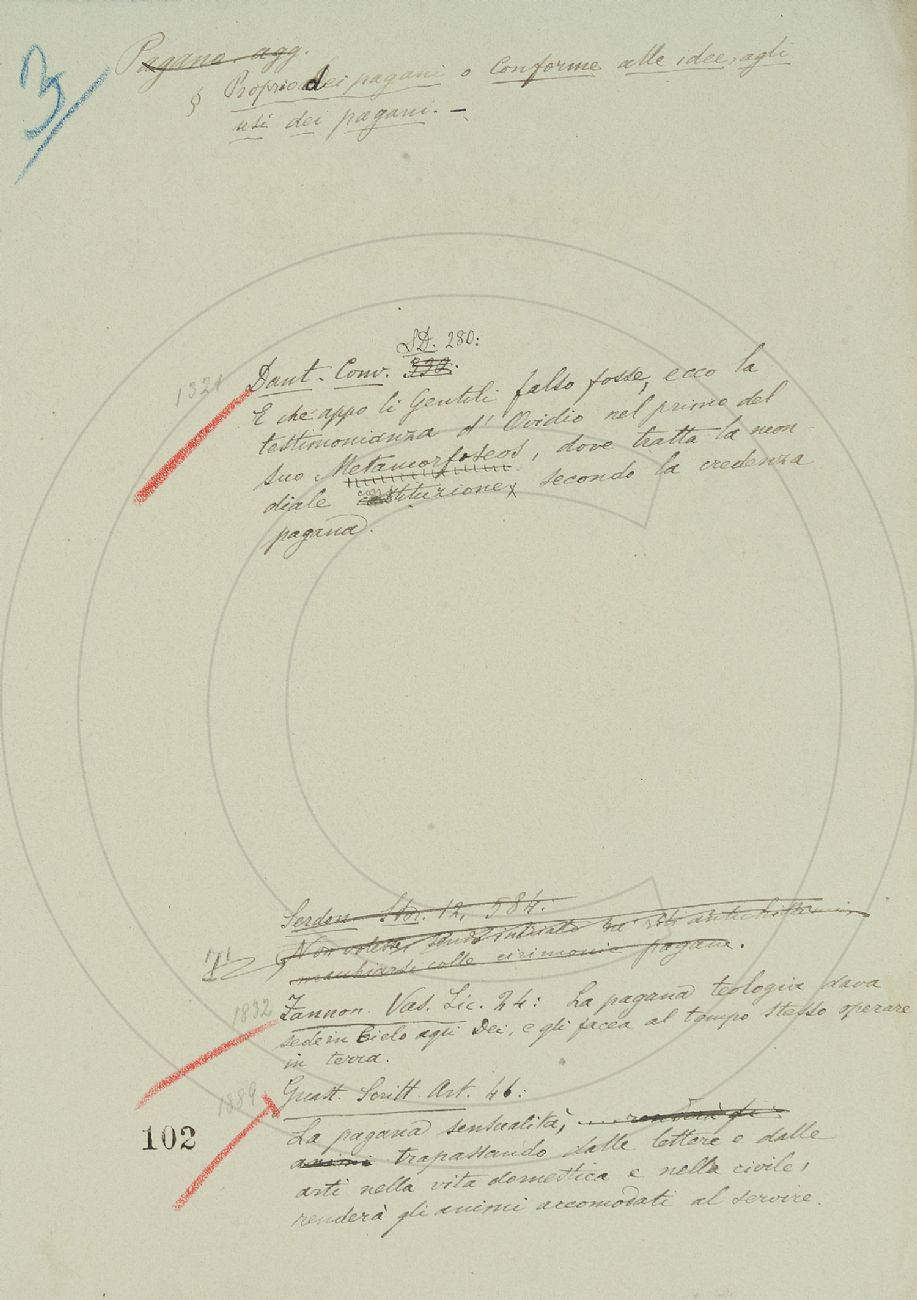 3
Pagano. agg.
§ Proprio dei pagani o conforme alle idee, agli
usi dei pagani. —
SD. 280:
1321 Dant. Conv. 332.
E che appo li Gentili falso fosse, ecco la
testimonianza d' Ovidio nel primo del
suo Metamorfoseos, dove tratta la mon-
diale costituzione, secondo la credenza
pagana.
Serdon. Stor. 12, 584:
Non volesse sendo iniziato
macchiarsi colle cirimonie pagane.
1832 Zannon. Vas. Lic. 24: La pagana teologia dava
sede in Cielo agli Dei, e gli facea al tempo stesso operare
in terra.
1889 Guast. Scritt. Art. 46:
102
La pagana sensualità, ... renderà gli
animi trapassando dalle lettere e dalle
arti nella vita domestica e nella civile,
renderà gli animi accomodati al servire.